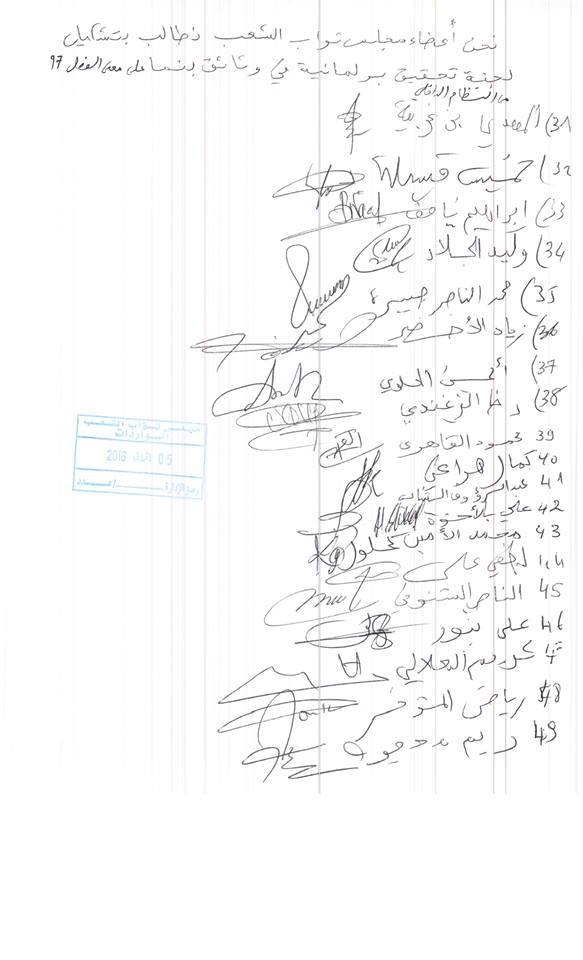 نحن أعضاء مجلس نواب الشعب نطالب بتشكيل
لجنة تحقيق برلمانية في وثائق بنما على معنى الفصل 97
من النظام الداخلي
31) المهدي بن غربية
32) خميس قسيلة
33) ابراهيم ناصف
34) وليد الجلاد
35) محمد الناصر جبيرة
36) زياد الأخضر
37) أيمن العلوي
38) رضا الزغندي
39 محمود القاهري
40 كمال هراغي
41 عبد الرؤوف الشابي
42 علي بالأخوة
43 محمد الأمين كحلول
44 لخفي علي
45 الناصر الشنوفي
46 علي بنور
47 كريم الهلالي
48 رياض المؤخر
49 ريم محجوب
مجلس نواب الشعب
الــواردات
05 2016
رقم الإدارة ....../عــدد